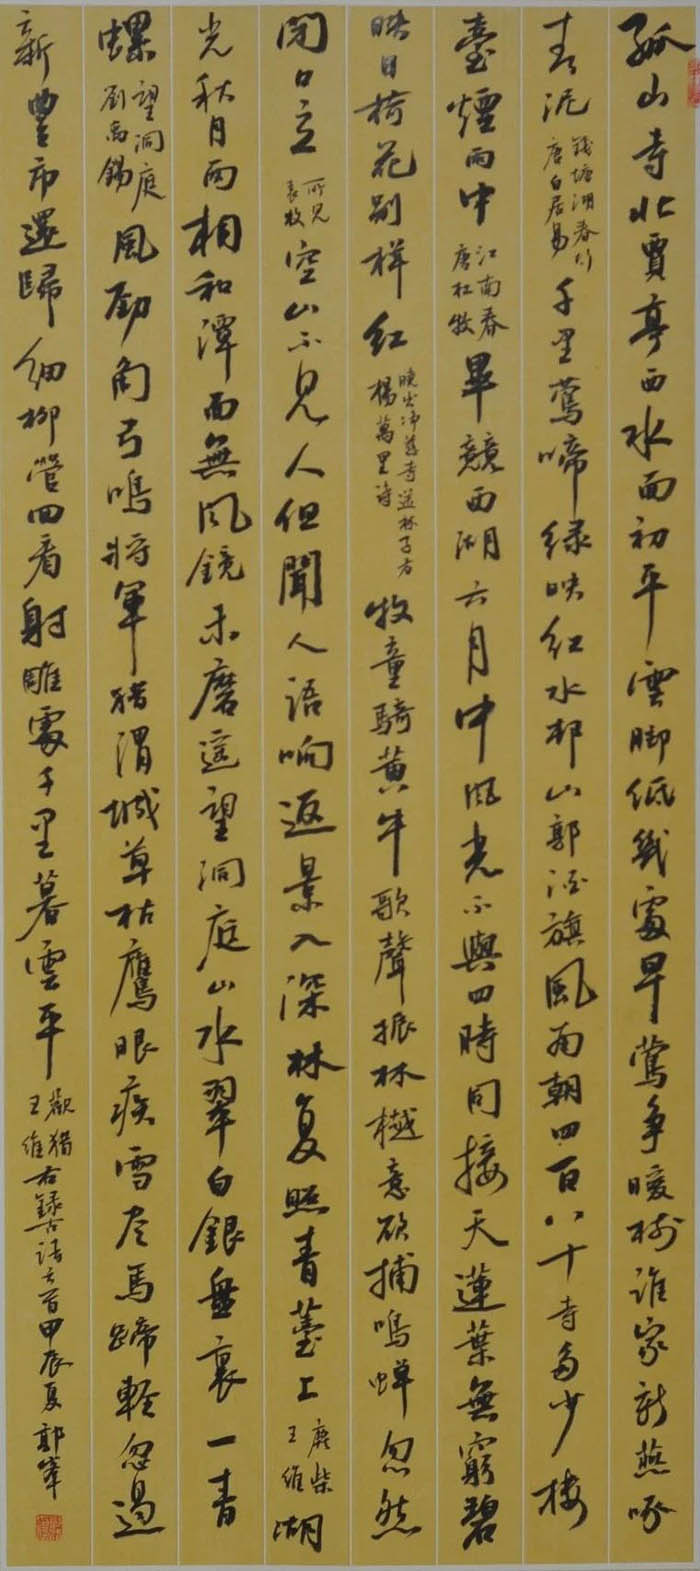 孤山寺北賈亭西水面初平雲脚低幾處早鶯争暖樹誰家新燕啄
春泥 錢塘湖春行 唐白居易 千里鶯啼緑映紅水邨山郭酒旗風南朝四百八十寺多少樓
臺煙雨中 江南春 唐杜牧 畢竟西湖六月中風光不與四時同接天蓮葉無窮碧
映日荷花别樣紅 曉出净慈寺送林子方 楊萬里詩 牧童騎黄牛歌聲振林樾意欲捕鳴蟬忽然
閉口立 所見 袁枚 空山不見人但聞人語响返景入深林复照青薹上 鹿柴 王維 湖
光秋月兩相和潭面無風鏡未磨遥望洞庭山水翠白銀盤裏一青
螺 望洞庭 劉禹錫 風勁角弓鳴將軍猎渭城草枯鷹眼疾雪尽馬蹄輕忽過
新豐市還歸細柳營回看射雕處千里暮雲平 觀猎 王維 右録古詩七首甲辰夏郭峯